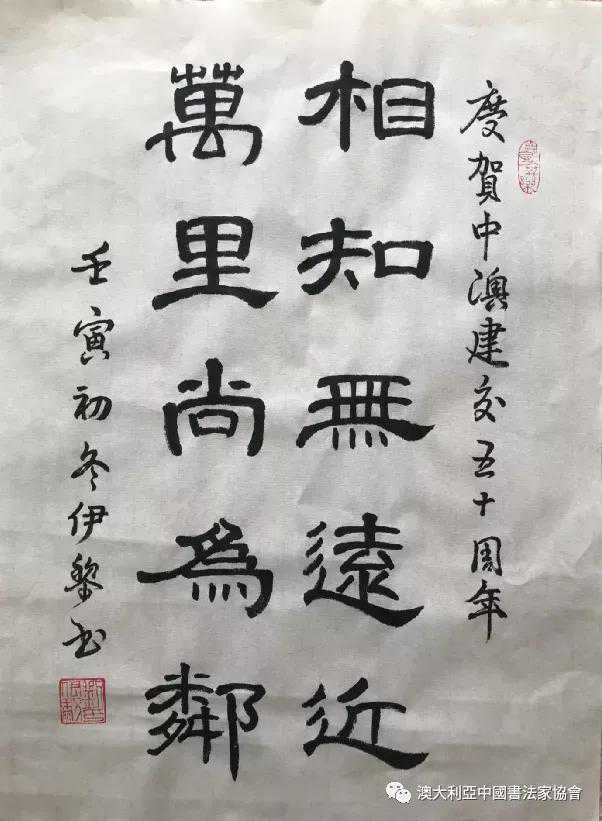 慶賀中澳建交五十周年
相知無遠近
萬里尚為鄰
壬寅初冬伊黎书
澳大利亞中國書法家協會